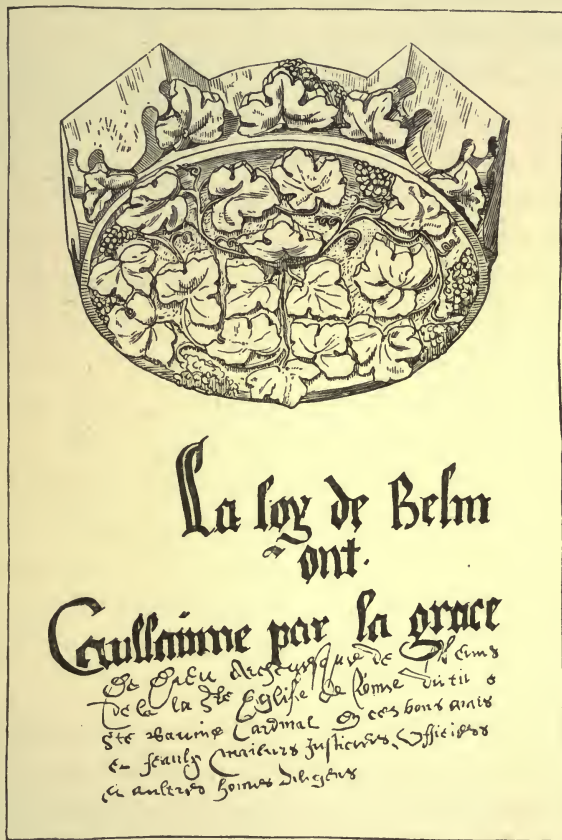 La loy de Belm
ont.
Guillaume par la grace
De Dieu Archevesque de Reims
De la Ste Eglise de Rome du til
Ste Cardinal ces bons amis
et feaulx maieurs Justiciers Officiers
et aultres homes diligens